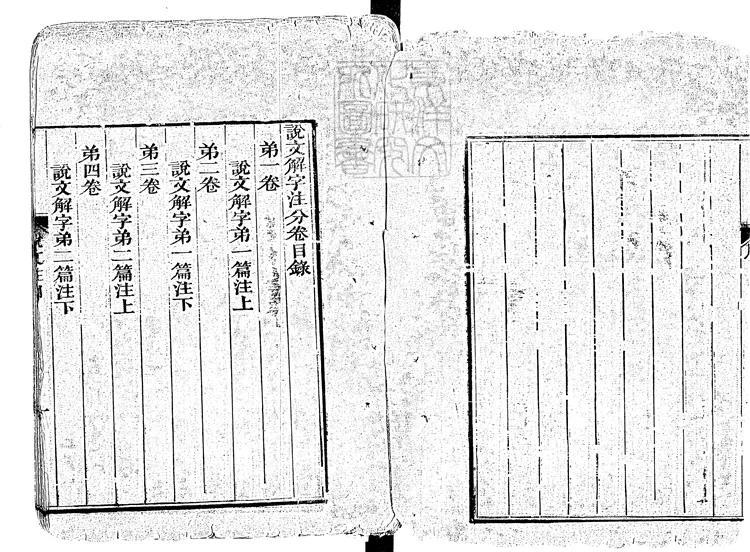 說文解字注分卷目錄
弟一卷
說文解字弟一篇注上
弟二卷
說文解字弟一篇注下
弟三卷
說文解字弟二篇注上
弟四卷
說文解字弟二篇注下